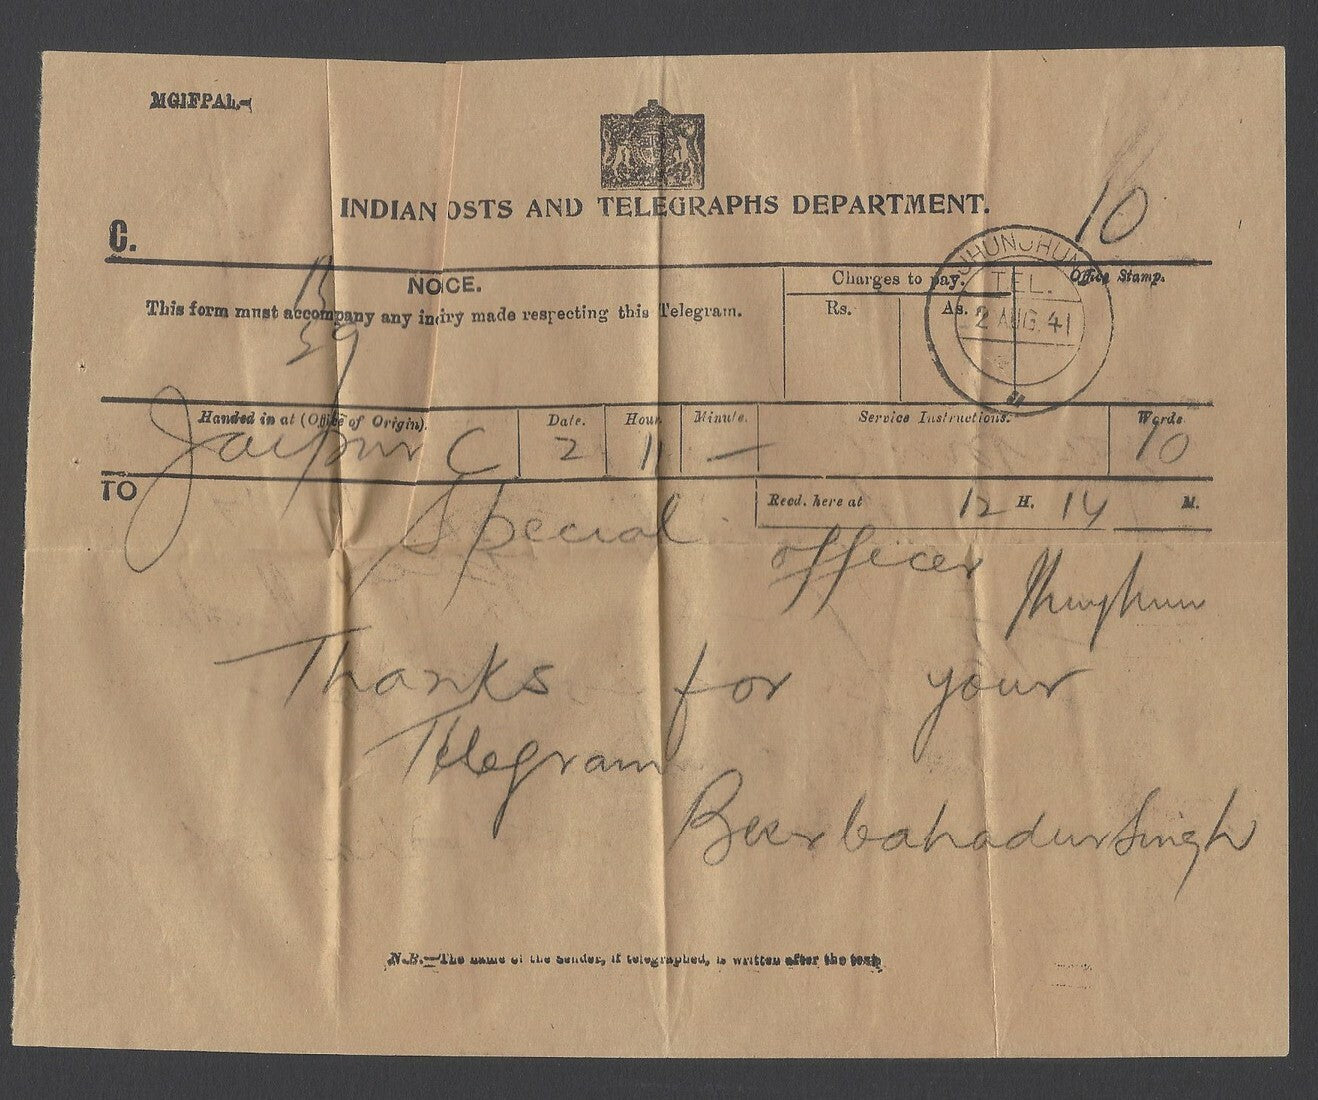 MGIFPAL-
10
INDIAN OSTS AND TELEGRAPHS DEPARTMENT.
C.
JHUNJHUN
TEL.
2 AUG. 41
NOCE.
This form must accompany any indiry made respecting this Telegram.
Charges to pay.
Office Stamp.
Rs.
As.
13
59
Handed in at (Office of Origin).
Date.
Hour.
Minute.
Service Instructions.
Words
Jaipur C
2
11
—
10
TO
Recd. here at 12 H. 14 M.
Special officer
Thanks for your
Telegram
Beerbahadur Singh
N.B.—The name of the Sender, if telegraphed, is written after the text.